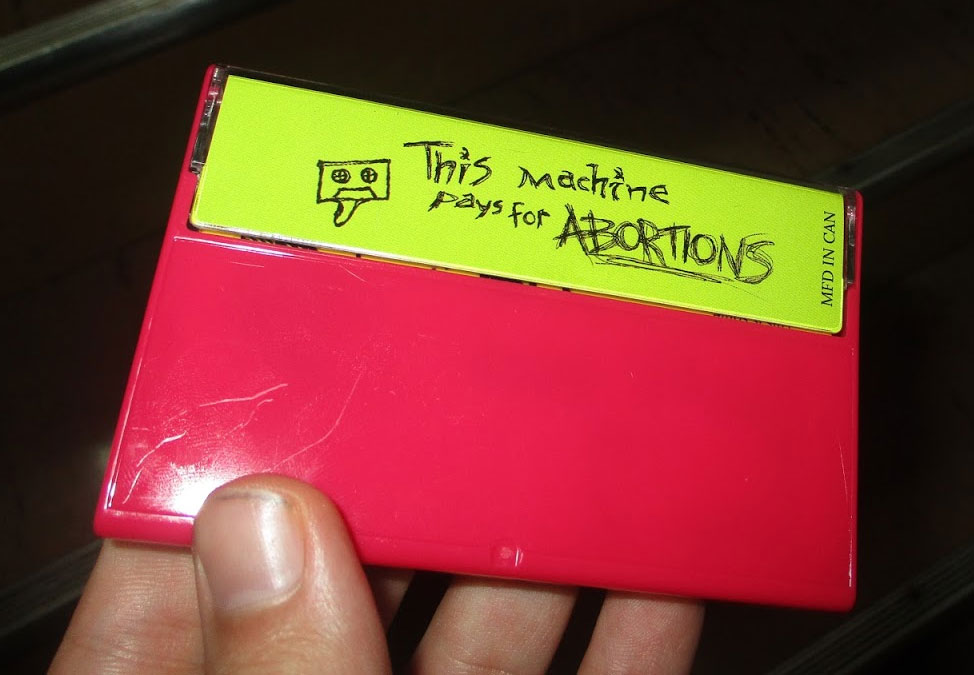 This machine
pays for ABORTIONS
MFD IN CAN